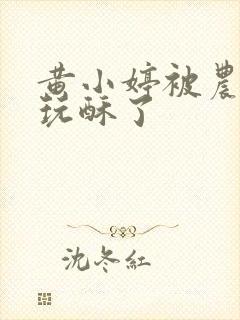 黄小婷被農
玩酥了
沈冬紅